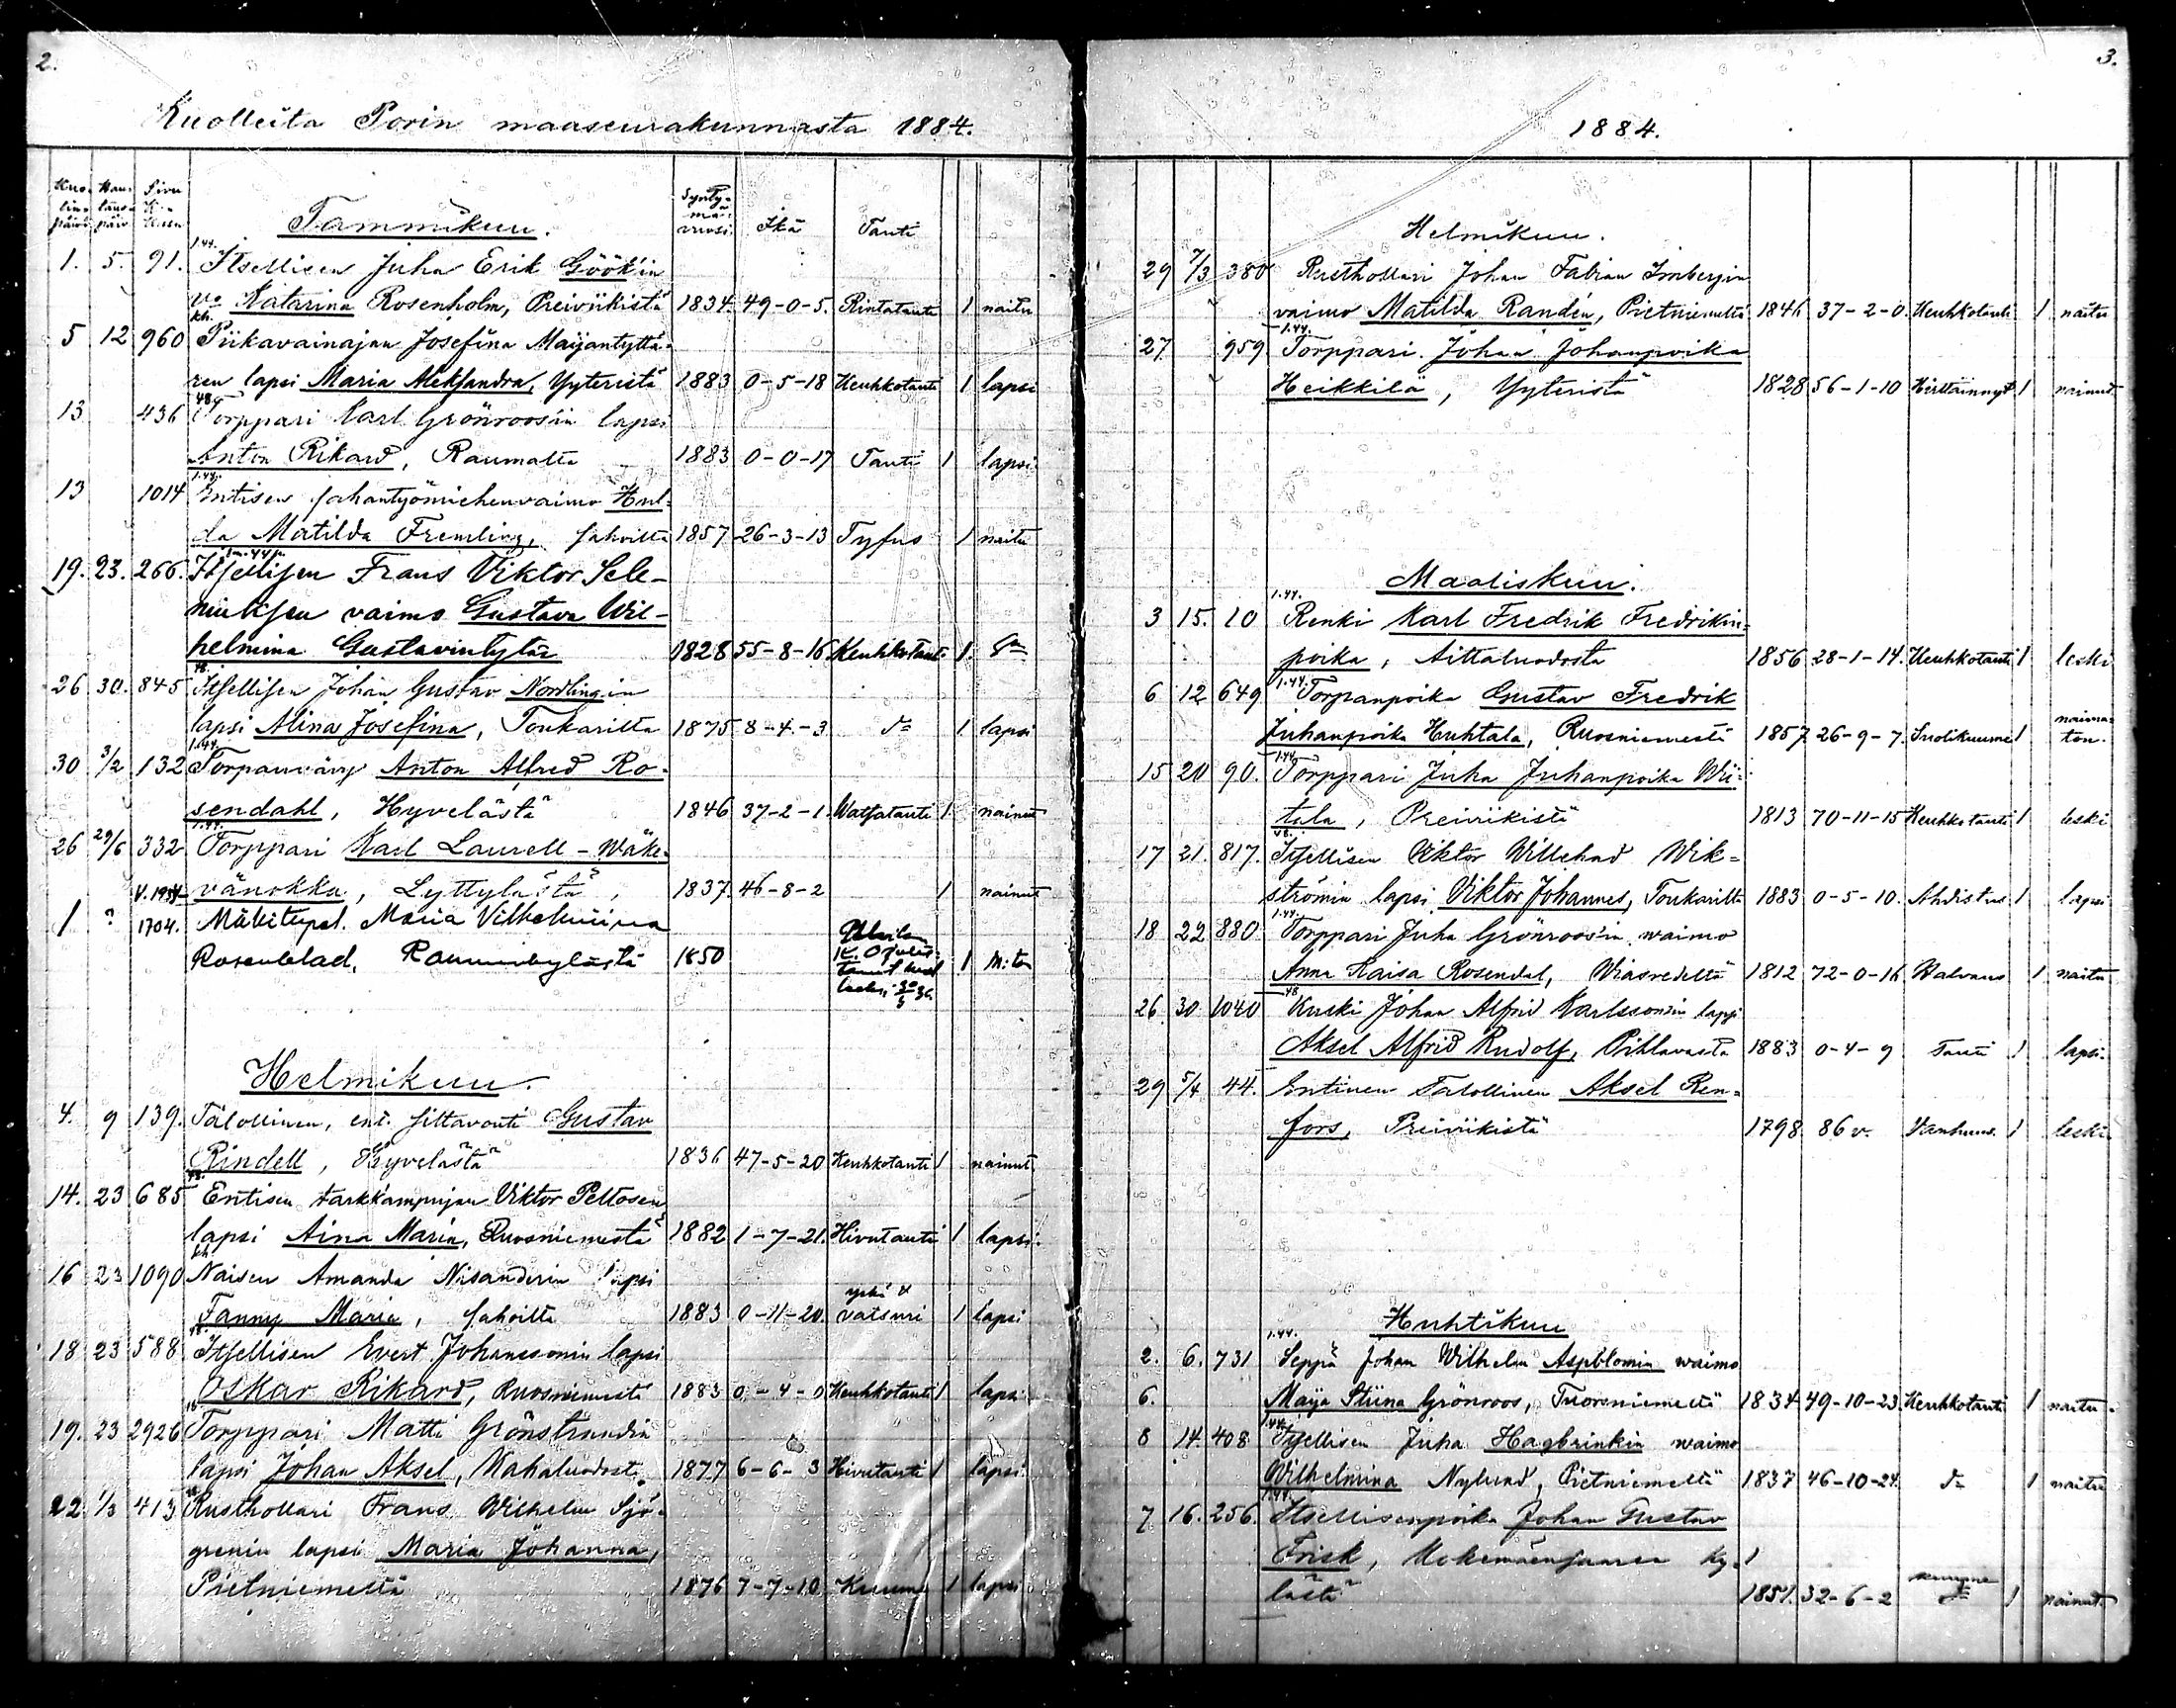 2.
Kuolleita Porin maaseurakunnasta 1884.
Kuo- Hau- Sivu
lin- taus- K.-
päivä päiv. kirjan
Synty-
mä-
vuosi. Ikä Tauti
Tammikuu.
1.44.
1. 5. 91. Itsellisen Juha Erik Göök'in
vo Katarina Rosenholm, Preiviikistä 1834. 49-0-5. Rintatauti 1 naitu
kh.
5 12 960 Piikavainajan Josefina Maijantyttä-
ren lapsi Maria Aleksandra, Yyteristä 1883 0-5-18 Keuhkotauti 1 lapsi
48.
13 436 Torppari Karl Grönroosin lapsi
Anton Rikard, Raumalta 1883 0-0-17 Tauti 1 lapsi
1.44.
13 1014 Entisen sahantyömiehenvaimo Hul-
da Matilda Fremling, sahoilta 1857 26-3-13 Tyfus 1 naitu
19. 23. 266. Itsellisen Frans Viktor Sele-
niuksen vaimo Gustava Wil-
helmina Gustavintytär 1828 55-8-16 Keuhkotaut. 1.
48.
26 30. 845 Itsellisen Johan Gustav Nordlingin
lapsi Alina Josefina, Toukarilta 1875 8-4-3 do 1 lapsi
1.44.
30 3/2 132 Torpanvävy Anton Alfred Ro-
sendahl, Hyvelästä 1846 37-2-1. Watsatauti 1 nainut
1.44.
26 29/6 332 Torppari Karl Laurell-Wäke-
vänokka, Lyttylästä, 1837. 46-8-2 1 nainut
1 ? 1704. Mäkitupal. Maria Vilhelmiina
Rosenblad, Rauminkylästä 1850 1 n:ton
Helmikuu.
4. 9 139. Talollinen, ent. siltavouti Gustav
Rindell, Hyvelästä 1836 47-5-20 Keuhkotauti 1 nainut
48.
14. 23 685 Entisen tarkkampujan Viktor Peltosen
lapsi Aina Maria, Ruosniemestä 1882 1-7-21. Hivutauti 1 lapsi.
kh.
16 23 1090 Naisen Amanda Nisanderin lapsi
yskä &
Fanny Maria, sahoilta 1883 0-11-20. vatsuri 1 lapsi
48.
18 23 588 Itsellisen Evert Johanssonin lapsi
Oskar Rikard, Ruosniemestä 1883 0-4-0 Keuhkotauti 1 lapsi
48
19. 23 2926 Torppari Matti Grönstrandin
lapsi Johan Aksel, Kahaluodosta 1877 6-6-3 Hivutauti 1 lapsi
22. 1/3 413 Rusthollari Frans Wilhelm Sjö-
grenin lapsi Maria Johanna,
Pietniemeltä 1876 7-7-10. Kuume 1 lapsi
3.
1884.
Helmikuu.
29 7/3 380 Rusthollari Johan Fabian Imbergin
vaimo Matilda Randén, Pietniemeltä 1846 37-2-0. Keuhkotauti 1 naitu
1.44.
27 959 Torppari Johan Johanpoika
Heikkilä, Yyteristä 1828 56-1-10 Hirttäinnyt 1 nainut
Maaliskuu.
1.44.
3 15. 10 Renki Karl Fredrik Fredrikin-
poika, Aittaluodosta 1856 28-1-14. Keuhkotauti 1 leski
1.44.
6 12 649 Torpanpoika Gustav Fredrik
naima-
Juhanpoika Huhtala, Ruosniemestä 1857 26-9-7. Suolikuume 1 ton.
1.44.
15 20 90. Torppari Juha Juhanpoika Wii-
tala, Preiviikistä 1813 70-11-15 Keuhkotauti 1 leski
48.
17 21. 817. Itsellisen Viktor Willehad Wik-
strömin lapsi Viktor Johannes, Toukarilta 1883 0-5-10. Ahdistus 1 lapsi
1.44.
18 22 880 Torppari Juha Grönroos'in waimo
Anna Kaisa Rosendal, Wiasvedeltä 1812 72-0-16 Halvaus 1 naitu
48
26 30 1040 Kuski Johan Alfrid Karlssonin lapsi
Aksel Alfrid Rudolf, Pihlavasta 1883 0-4-9 Tauti 1 lapsi.
29 5/4 44. Entinen Talollinen Aksel Ren-
fors, Preiviikistä 1798 86 v. Vanhuus. 1 leski
Huhtikuu
1.44.
2. 6. 731 Seppä Johan Wilhelm Aspblomin waimo
6. Maija Stiina Grönroos, Tuorsniemeltä 1834 49-10-23. Keuhkotauti 1 naitu.
1.44.
8 14. 408 Itsellisen Juha Hagbrinkin waimo
Wilhelmina Nylund, Pietniemeltä 1837 46-10-24. do 1 naitu
1.44.
7 16. 256. Itsellisenpoika Johan Gustav
Frisk, Kokemäensaaren ky-
lästä 1851. 32-6-2 1 nainut